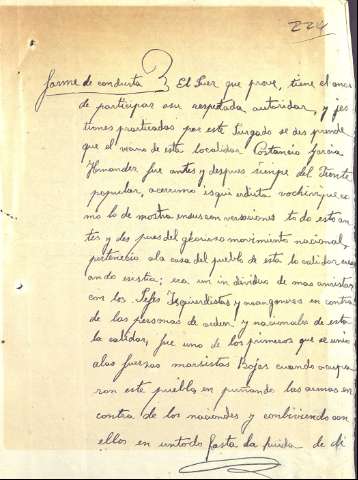 224
forme de conducta El Juez que prove, tiene el onor
de participar a su respetada autoridaz, y jes
tiones practicadas por este Juzgado se des prende
que el vecino de esta localidaz Costancio Garcia
Hernandez fue antes y despues siempre del Frente
popular, acerrimo isqui erdista
mo lo de mostra en sus com versaciones to do esto an
tes y des pues del glorioso movimiento nacional,
pertenecio a la casa del pueblo de esta lo calidaz cu
ando existia; era un in dividuo de mas amistaz
con los Jefes Izquierdistas y en contra
de las personas de orden y nacionales de esta
lo calidaz, fue uno de los primeros que se unio
a las fuerzas marsistas Rojas cuando ocupa
ron este pueblo en puñando las armas en
contra de los nacionales y combiviendo con
ellos en un todo fasta la juida de di